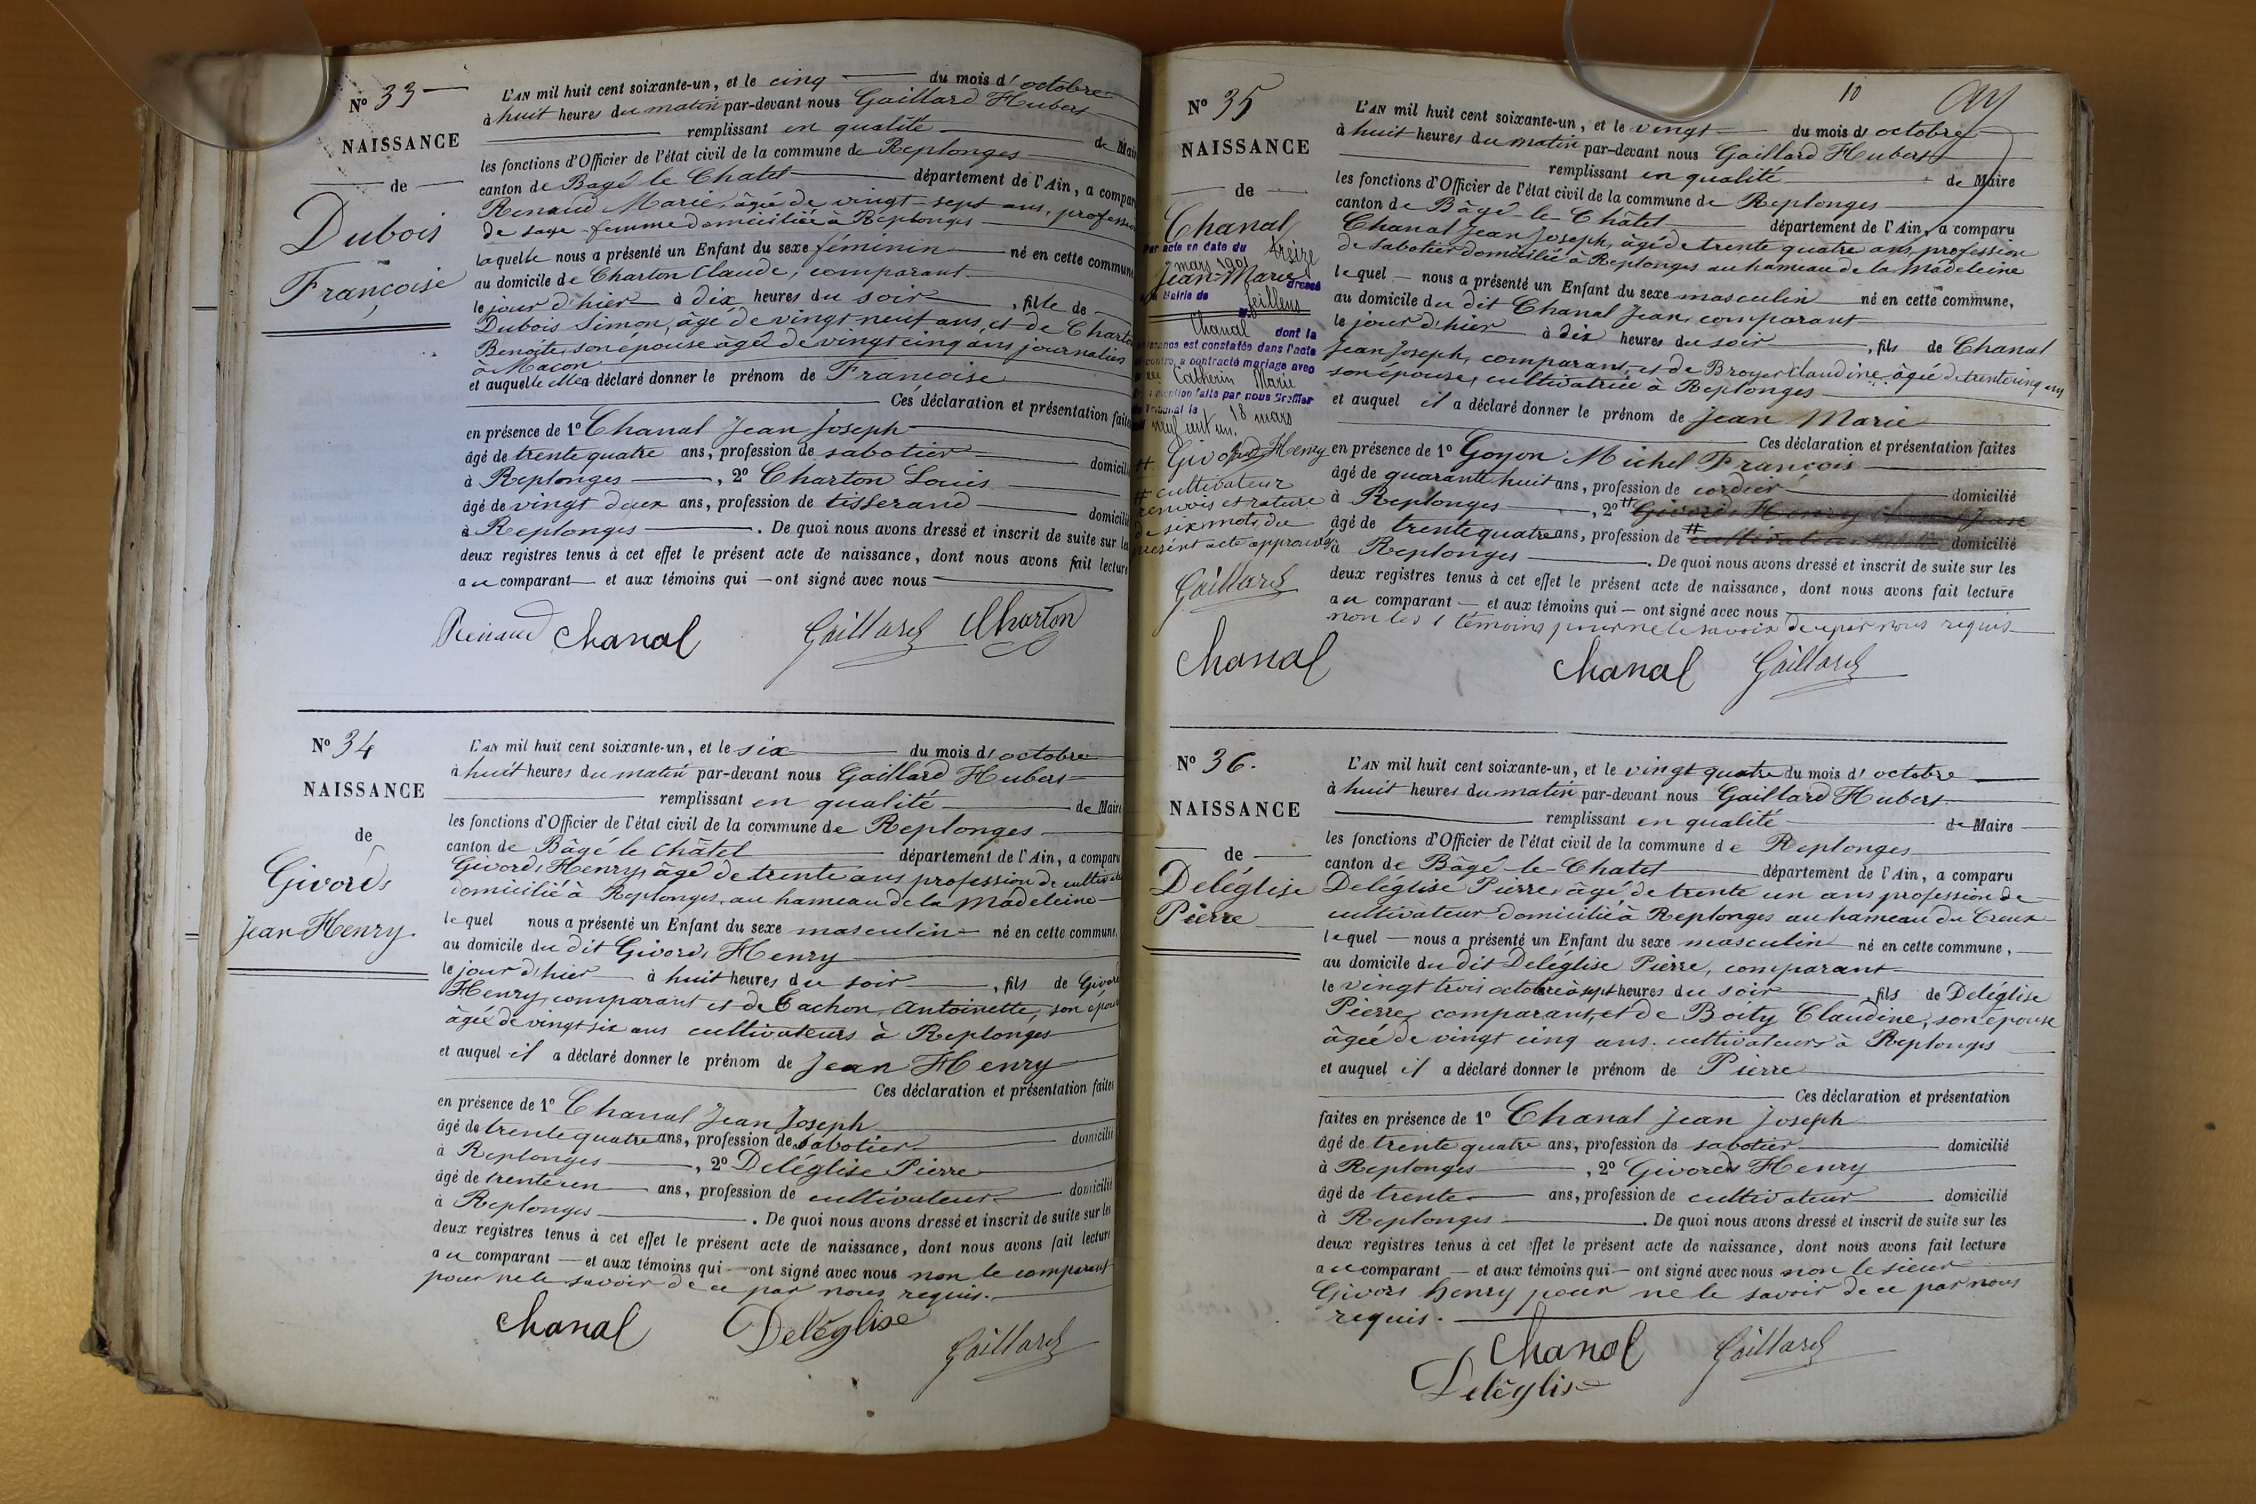 N° 33
NAISSANCE
de
Dubois
Françoise
L'AN mil huit cent soixante-un, et le cinq du mois d'octobre
à huit heures du matin par-devant nous Gaillard Hubert
remplissant en qualité de Mai
les fonctions d'Officier de l'état civil de la commune de Replonges
canton de Bagé le Chatel département de l'Ain, a compar
Renaud Marie, âgée de vingt-sept ans, professi
de sage-femme domiciliée à Replonges
laquelle nous a présenté un Enfant du sexe féminin né en cette commune
au domicile de Charton Claude, comparant
le jour d'hier à dix heures du soir, fille de
Dubois Simon, âgé de vingt neuf ans, et de Charton
Benoite, son épouse âgé de vingt cinq ans journaliers
à Macon
et auquelle elle a déclaré donner le prénom de Françoise
Ces déclaration et présentation faites
en présence de 1° Chanal Jean Joseph
âgé de trente quatre ans, profession de sabotier domicili
à Replonges, 2° Charton Louis
âgé de vingt deux ans, profession de tisserand domicilié
à Replonges. De quoi nous avons dressé et inscrit de suite sur les
deux registres tenus à cet effet le présent acte de naissance, dont nous avons fait lecture
au comparant et aux témoins qui ont signé avec nous
Renaud Chanal Gaillard Charton
N° 34
NAISSANCE
de
Givord
Jean Henry.
L'AN mil huit cent soixante-un, et le six du mois d'octobre
à huit heures du matin par-devant nous Gaillard Hubert
remplissant en qualité de Maire
les fonctions d'Officier de l'état civil de la commune de Replonges
canton de Bâgé le Châtel département de l'Ain, a comparu
Givord, Henry, âgé de trente ans profession de cultivate
domicilié à Replonges, au hameau de la Madeleine
lequel nous a présenté un Enfant du sexe masculin né en cette commune,
au domicile du dit Givord, Henry
le jour d'hier à huit heures du soir, fils de Givord
Henry, comparant et de Cachon, Antoinette, son épouse
âgée de vingt six ans cultivateurs à Replonges
et auquel il a déclaré donner le prénom de Jean Henry
Ces déclaration et présentation faites
en présence de 1° Chanal Jean Joseph
âgé de trente quatre ans, profession de sabotier domicilié
à Replonges, 2° Deléglise Pierre
âgé de trente un ans, profession de cultivateur domicilié
à Replonges. De quoi nous avons dressé et inscrit de suite sur les
deux registres tenus à cet effet le présent acte de naissance, dont nous avons fait lecture
au comparant et aux témoins qui ont signé avec nous non le comparant
pour ne le savoir de ce par nous requis.
Chanal Deléglise
Gaillard
10
N° 35
NAISSANCE
de
Chanal
Par acte en date du treize
mars 1901
Jean-Marie
dressé
Mairie de Feillens
M. Chanal dont la
naissance est constatée dans l'acte
ci-contre, a contracté mariage avec
Catherin Marie
mention faite par nous Greffier
du Tribunal le 18 mars
neuf cent un.
# Givord, Henry
# cultivateur
renvois et rature
de six mots du
présent acte approuvés
Gaillard
Chanal
L'AN mil huit cent soixante-un, et le vingt du mois d'octobre
à huit heures du matin par-devant nous Gaillard Hubert
remplissant en qualité de Maire
les fonctions d'Officier de l'état civil de la commune de Replonges
canton de Bâgé-le-Châtel département de l'Ain, a comparu
Chanal Jean Joseph, âgé de trente quatre ans, profession
de sabotier domicilié à Replonges au hameau de la Madeleine
lequel nous a présenté un Enfant du sexe masculin né en cette commune,
au domicile du dit Chanal Jean, comparant
le jour d'hier à dix heures du soir, fils de Chanal
Jean Joseph, comparant, et de Broyer Claudine, âgée de trente cinq ans
son épouse, cultivatrice à Replonges
et auquel il a déclaré donner le prénom de Jean Marie
Ces déclaration et présentation faites
en présence de 1° Goyon Michel François
âgé de quarante huit ans, profession de cordier domicilié
à Replonges, 2° # Givord Henry
âgé de trente quatre ans, profession de # cultivateur domicilié
à Replonges. De quoi nous avons dressé et inscrit de suite sur les
deux registres tenus à cet effet le présent acte de naissance, dont nous avons fait lecture
au comparant et aux témoins qui ont signé avec nous
non les témoins pour ne le savoir de ce par nous requis
Chanal Gaillard
N° 36.
NAISSANCE
de
Deléglise
Pierre
L'AN mil huit cent soixante-un, et le vingt quatre du mois d'octobre
à huit heures du matin par-devant nous Gaillard Hubert
remplissant en qualité de Maire
les fonctions d'Officier de l'état civil de la commune de Replonges
canton de Bâgé-le-Chatel département de l'Ain, a comparu
Deléglise Pierre, âgé de trente un ans profession de
cultivateur domicilié à Replonges au hameau du Creux
lequel nous a présenté un Enfant du sexe masculin né en cette commune,
au domicile du dit Deléglise Pierre, comparant
le vingt trois octobre à sept heures du soir fils de Deléglise
Pierre, comparant, et de Boity Claudine, son épouse
âgée de vingt cinq ans. cultivateurs à Replonges
et auquel il a déclaré donner le prénom de Pierre
Ces déclaration et présentation
faites en présence de 1° Chanal Jean Joseph
âgé de trente quatre ans, profession de sabotier domicilié
à Replonges, 2° Givord Henry
âgé de trente ans, profession de cultivateur domicilié
à Replonges. De quoi nous avons dressé et inscrit de suite sur les
deux registres tenus à cet effet le présent acte de naissance, dont nous avons fait lecture
au comparant et aux témoins qui ont signé avec nous non le sieur
Givors henry pour ne le savoir de ce par nous
requis.
Chanal Gaillard
Deléglise